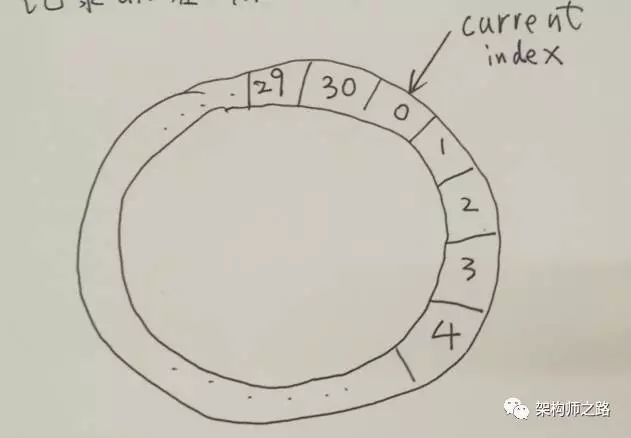 current
index
29
30
0
1
2
3
4
架构师之路